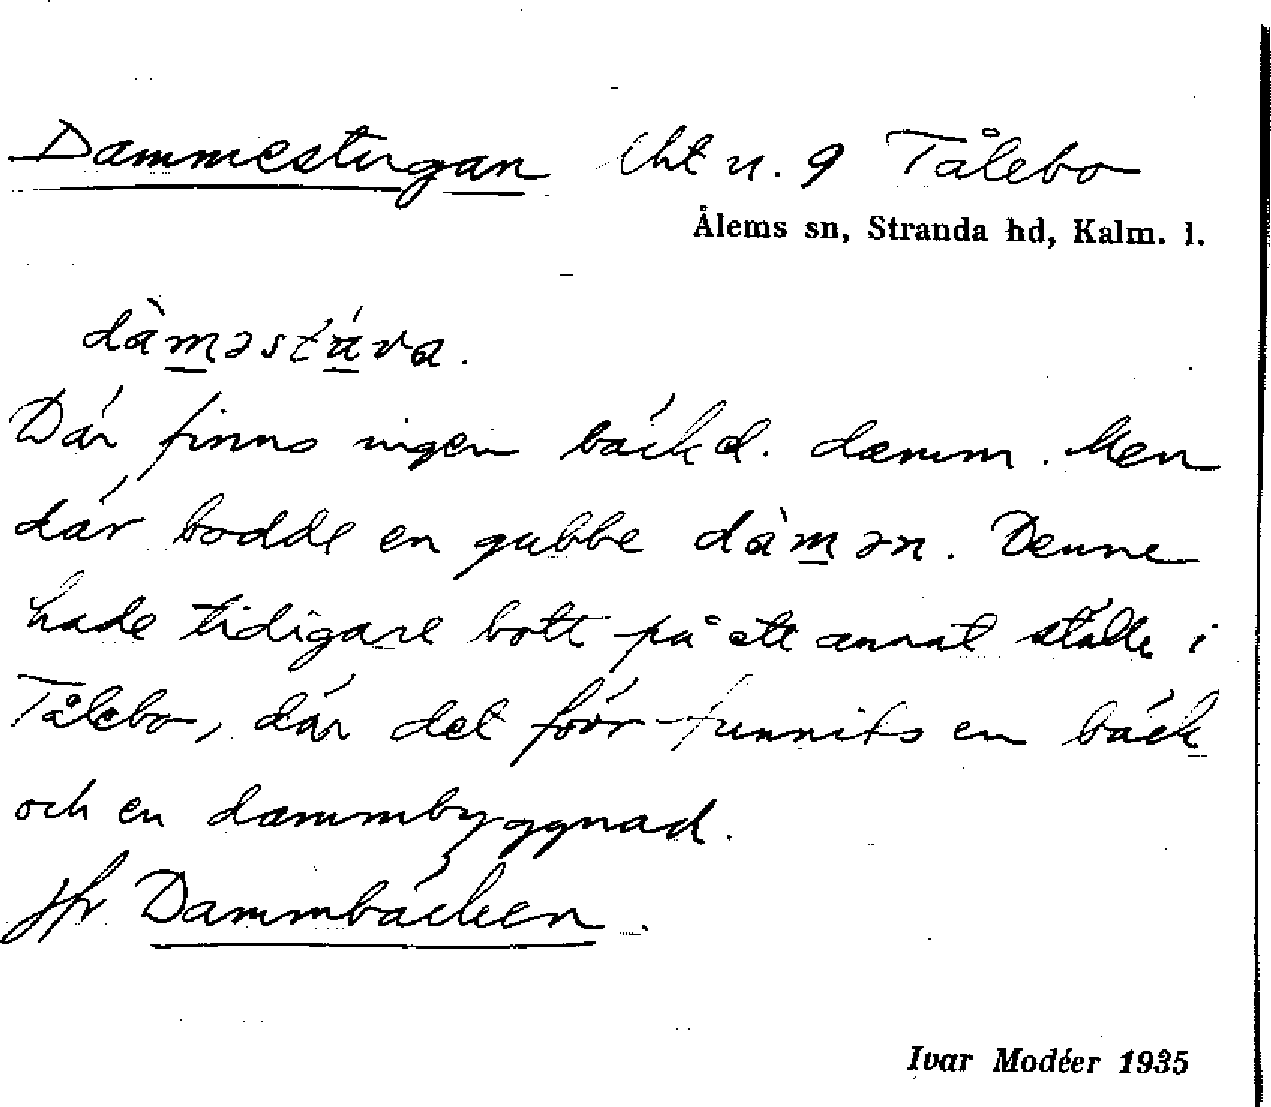 Dammestugan lht n. 9 Tålebo
Ålems sn, Stranda hd, Kalm. l.
dàməstúva.
Där finns ingen bäck el. damm. Men
där bodde en gubbe dàmən. Denne
hade tidigare bott på ett annat ställe i
Tålebo, där det förr funnits en bäck
och en dammbyggnad.
Jfr Dammbäcken.
Ivar Modéer 1935